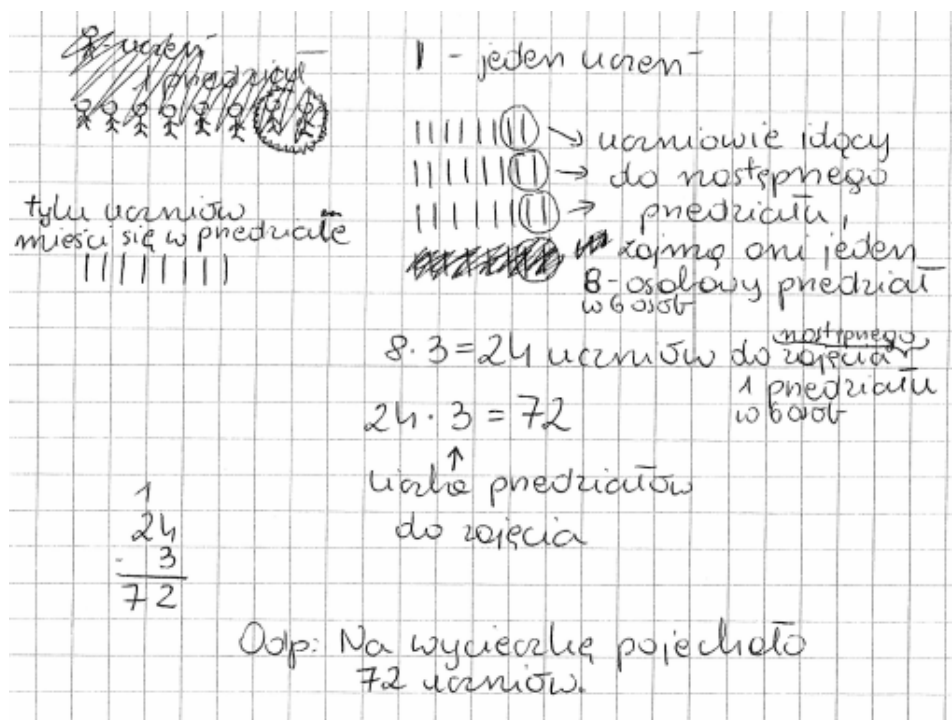 - uczeń
1 przedział
I - jeden uczeń
tylu uczniów
mieści się w przedziale
→ uczniowie idący
→ do następnego
→ przedziału,
zajmą oni jeden
8-osobowy przedział
w 6 osób
8 · 3 = 24 uczniów do zajęcia
następnego
1 przedziału
w 6 osób
24 · 3 = 72
↑
liczba przedziałów
do zajęcia
1
24
· 3
72
Odp: Na wycieczkę pojechało
72 uczniów.